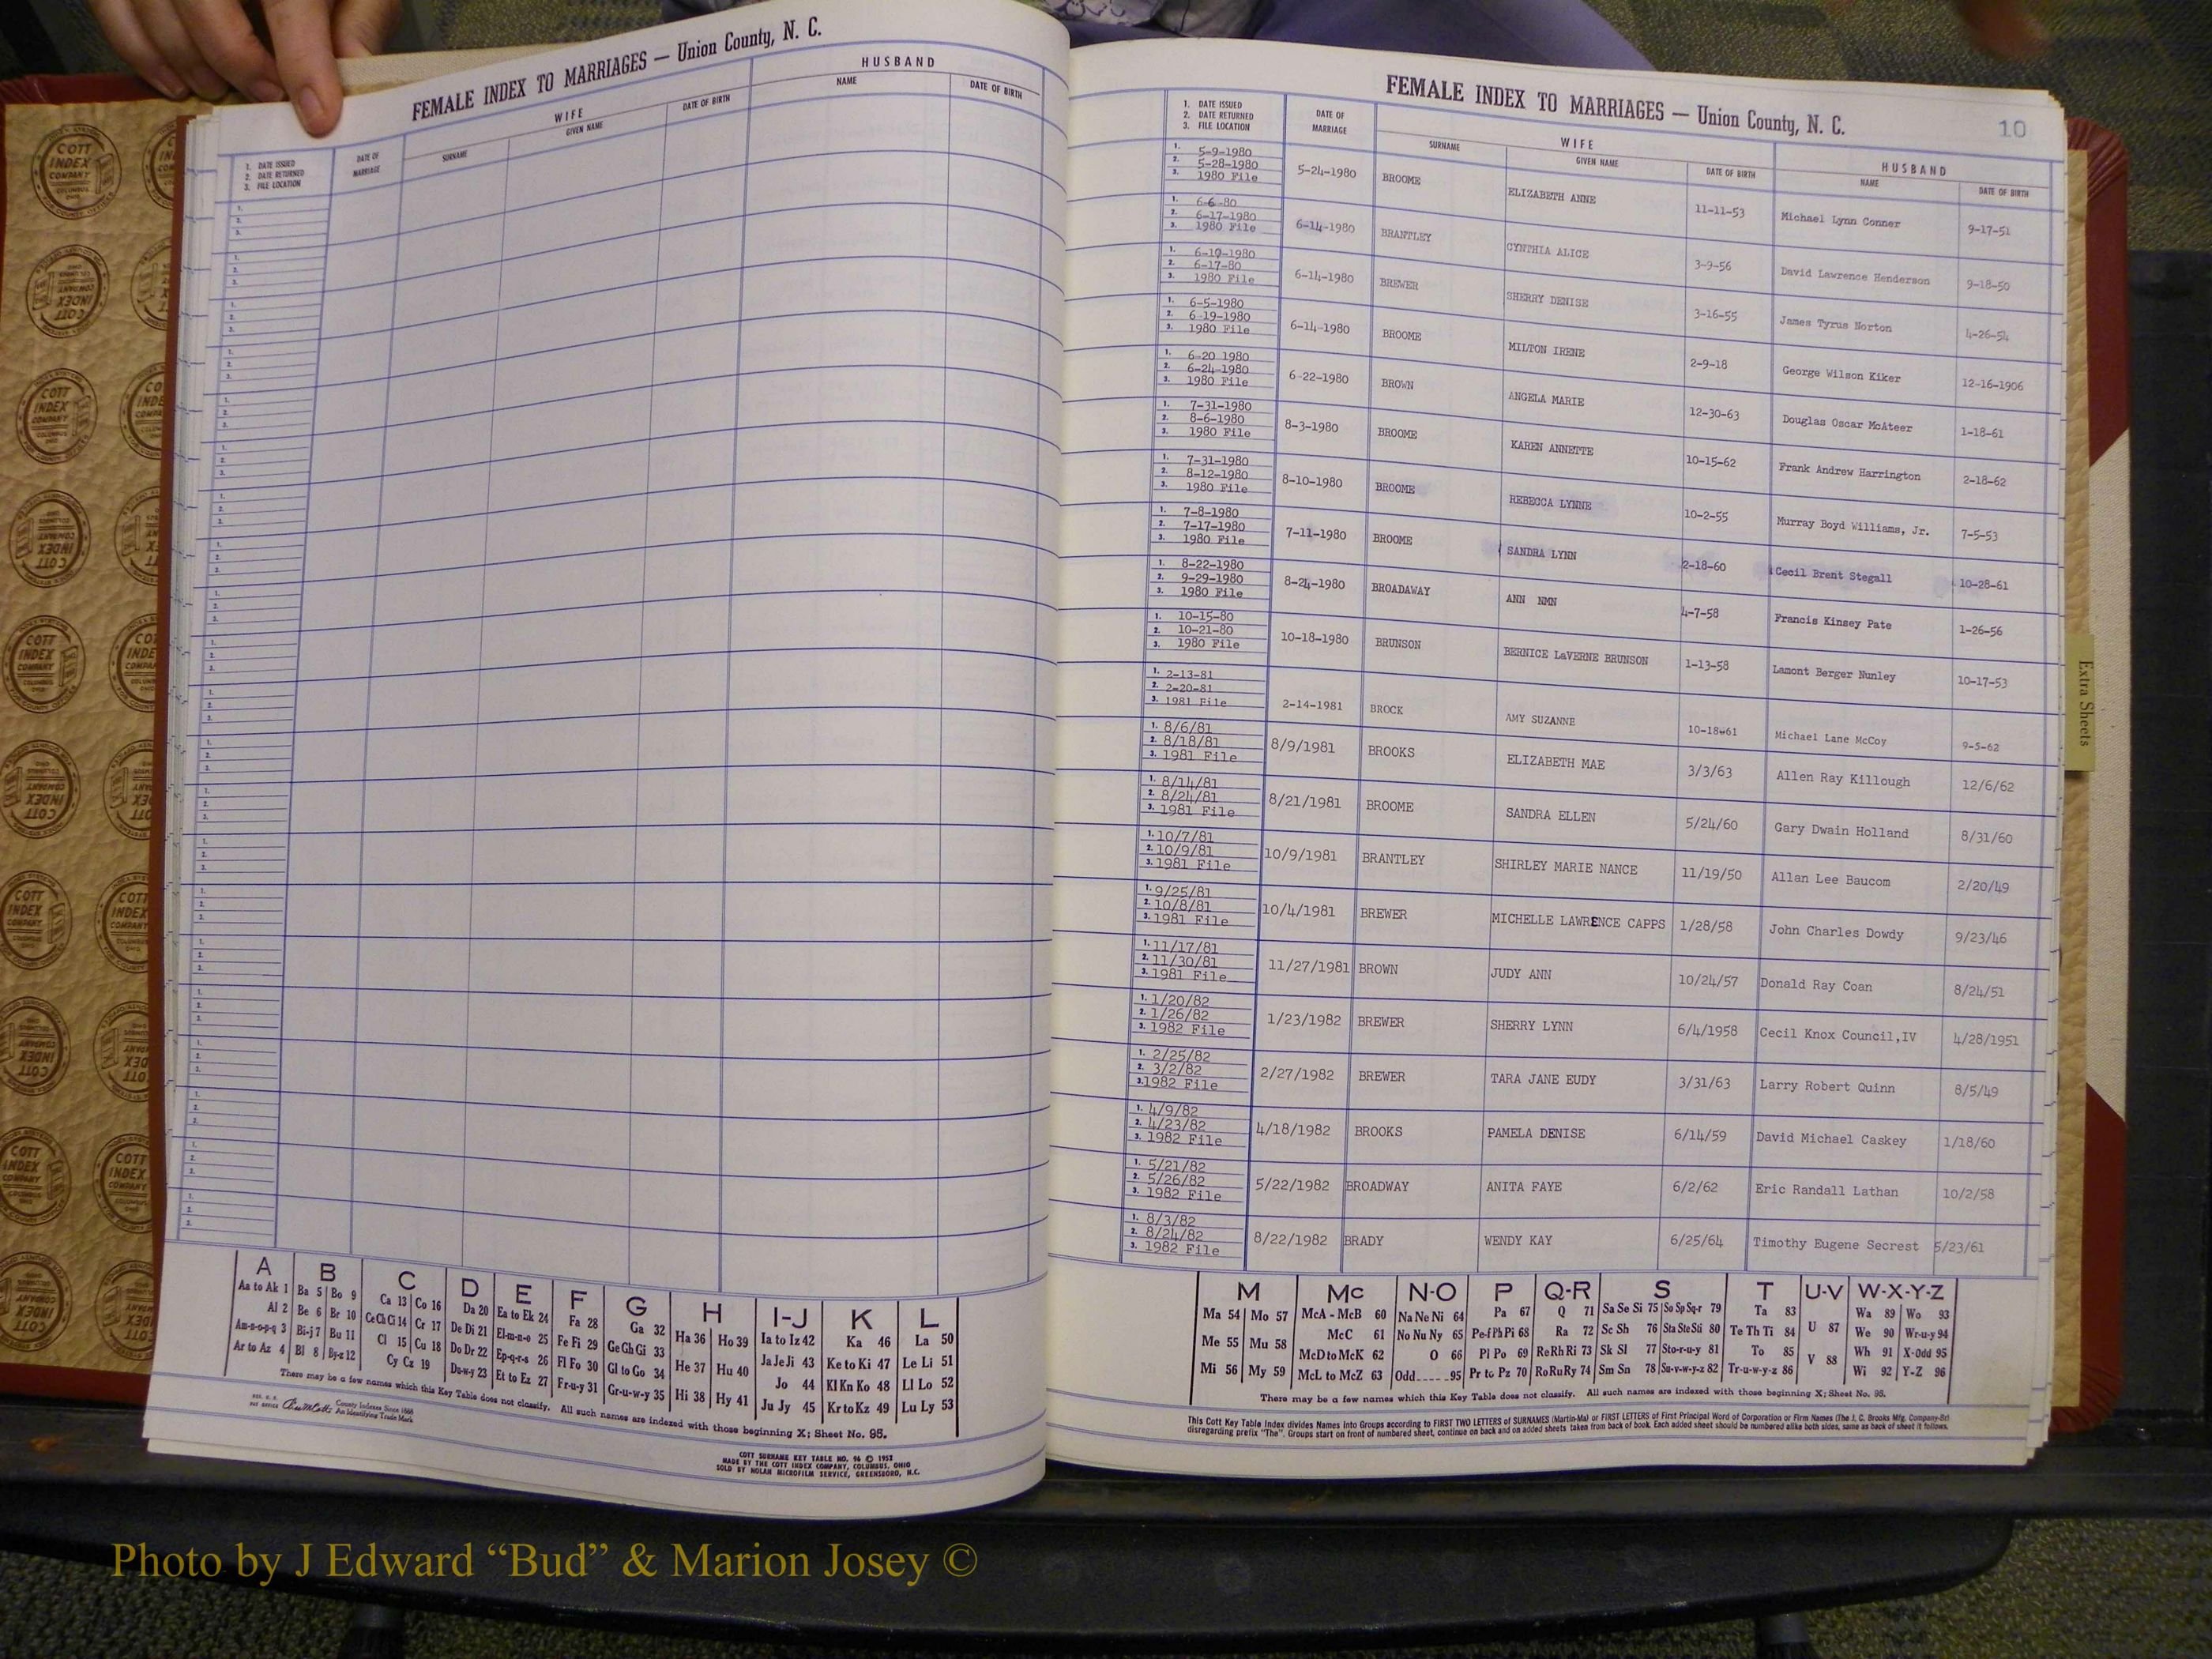 FEMALE INDEX TO MARRIAGES — Union County, N. C.
WIFE
HUSBAND
1. DATE ISSUED
2. DATE RETURNED
3. FILE LOCATION
DATE OF MARRIAGE
SURNAME
GIVEN NAME
DATE OF BIRTH
NAME
DATE OF BIRTH
A B C D E F G H I-J K L
Aa to Ak 1 Ba 5 Bo 9 Ca 13 Co 16 Da 20 Ea to Ek 24 Fa 28 Ga 32 Ha 36 Ho 39 Ia to Iz 42 Ka 46 La 50
Al 2 Be 6 Br 10 Ce Ch Ci 14 Cr 17 De Di 21 El-m-n-o 25 Fe Fi 29 Ge Gh Gi 33 He 37 Hu 40 Ja Je Ji 43 Ke to Ki 47 Le Li 51
Am-n-o-p-q 3 Bi-j 7 Bu 11 Cl 15 Cu 18 Do Dr 22 Ep-q-r-s 26 Fl Fo 30 Gl to Go 34 Hi 38 Hy 41 Jo 44 Kl Kn Ko 48 Ll Lo 52
Ar to Az 4 Bl 8 By-z 12 Cy Cz 19 Du-w-y 23 Et to Ez 27 Fr-u-y 31 Gr-u-w-y 35 Ju Jy 45 Kr to Kz 49 Lu Ly 53
There may be a few names which this Key Table does not classify. All such names are indexed with those beginning X; Sheet No. 95.
County Indexes Since 1888
An Identifying Trade Mark
COTT SURNAME KEY TABLE NO. 96 © 1957
MADE BY THE COTT INDEX COMPANY, COLUMBUS, OHIO
SOLD BY NOLAN MICROFILM SERVICE, GREENSBORO, N.C.
FEMALE INDEX TO MARRIAGES — Union County, N. C.
10
1. DATE ISSUED
2. DATE RETURNED
3. FILE LOCATION
DATE OF MARRIAGE
WIFE
SURNAME
GIVEN NAME
DATE OF BIRTH
HUSBAND
NAME
DATE OF BIRTH
1. 5-9-1980
2. 5-28-1980
3. 1980 File
5-24-1980 BROOME ELIZABETH ANNE 11-11-53 Michael Lynn Conner 9-17-51
1. 6-6-80
2. 6-17-1980
3. 1980 File
6-14-1980 BRANTLEY CYNTHIA ALICE 3-9-56 David Lawrence Henderson 9-18-50
1. 6-10-1980
2. 6-17-80
3. 1980 File
6-14-1980 BREWER SHERRY DENISE 3-16-55 James Tyrus Norton 4-26-54
1. 6-5-1980
2. 6-19-1980
3. 1980 File
6-14-1980 BROOME MILTON IRENE 2-9-18 George Wilson Kiker 12-16-1906
1. 6-20 1980
2. 6-24-1980
3. 1980 File
6-22-1980 BROWN ANGELA MARIE 12-30-63 Douglas Oscar McAteer 1-18-61
1. 7-31-1980
2. 8-6-1980
3. 1980 File
8-3-1980 BROOME KAREN ANNETTE 10-15-62 Frank Andrew Harrington 2-18-62
1. 7-31-1980
2. 8-12-1980
3. 1980 File
8-10-1980 BROOME REBECCA LYNNE 10-2-55 Murray Boyd Williams, Jr. 7-5-53
1. 7-8-1980
2. 7-17-1980
3. 1980 File
7-11-1980 BROOME SANDRA LYNN 2-18-60 Cecil Brent Stegall 10-28-61
1. 8-22-1980
2. 9-29-1980
3. 1980 File
8-24-1980 BROADAWAY ANN NMN 4-7-58 Francis Kinsey Pate 1-26-56
1. 10-15-80
2. 10-21-80
3. 1980 File
10-18-1980 BRUNSON BERNICE LaVERNE BRUNSON 1-13-58 Lamont Berger Nunley 10-17-53
1. 2-13-81
2. 2-20-81
3. 1981 File
2-14-1981 BROCK AMY SUZANNE 10-18-61 Michael Lane McCoy 9-5-62
1. 8/6/81
2. 8/18/81
3. 1981 File
8/9/1981 BROOKS ELIZABETH MAE 3/3/63 Allen Ray Killough 12/6/62
1. 8/14/81
2. 8/24/81
3. 1981 File
8/21/1981 BROOME SANDRA ELLEN 5/24/60 Gary Dwain Holland 8/31/60
1. 10/7/81
2. 10/9/81
3. 1981 File
10/9/1981 BRANTLEY SHIRLEY MARIE NANCE 11/19/50 Allan Lee Baucom 2/20/49
1. 9/25/81
2. 10/8/81
3. 1981 File
10/4/1981 BREWER MICHELLE LAWRENCE CAPPS 1/28/58 John Charles Dowdy 9/23/46
1. 11/17/81
2. 11/30/81
3. 1981 File
11/27/1981 BROWN JUDY ANN 10/24/57 Donald Ray Coan 8/24/51
1. 1/20/82
2. 1/26/82
3. 1982 File
1/23/1982 BREWER SHERRY LYNN 6/4/1958 Cecil Knox Council,IV 4/28/1951
1. 2/25/82
2. 3/2/82
3. 1982 File
2/27/1982 BREWER TARA JANE EUDY 3/31/63 Larry Robert Quinn 8/5/49
1. 4/9/82
2. 4/23/82
3. 1982 File
4/18/1982 BROOKS PAMELA DENISE 6/14/59 David Michael Caskey 1/18/60
1. 5/21/82
2. 5/26/82
3. 1982 File
5/22/1982 BROADWAY ANITA FAYE 6/2/62 Eric Randall Lathan 10/2/58
1. 8/3/82
2. 8/24/82
3. 1982 File
8/22/1982 BRADY WENDY KAY 6/25/64 Timothy Eugene Secrest 5/23/61
M Mc N-O P Q-R S T U-V W-X-Y-Z
Ma 54 Mo 57 McA - McB 60 Na Ne Ni 64 Pa 67 Q 71 Sa Se Si 75 So Sp Sq-r 79 Ta 83 U 87 Wa 89 Wo 93
Me 55 Mu 58 McC 61 No Nu Ny 65 Pe-f Ph Pi 68 Ra 72 Sc Sh 76 Sta Ste Sti 80 Te Th Ti 84 V 88 We 90 Wr-u-y 94
McD to McK 62 O 66 Pl Po 69 Re Rh Ri 73 Sk Sl 77 Sto-r-u-y 81 To 85 Wh 91 X-Odd 95
Mi 56 My 59 McL to McZ 63 Odd.....95 Pr to Pz 70 Ro Ru Ry 74 Sm Sn 78 Su-v-w-y-z 82 Tr-u-w-y-z 86 Wi 92 Y-Z 96
There may be a few names which this Key Table does not classify. All such names are indexed with those beginning X; Sheet No. 95.
This Cott Key Table Index divides Names into Groups according to FIRST TWO LETTERS of SURNAMES (Martin-Ma) or FIRST LETTERS of First Principal Word of Corporation or Firm Names (The J. C. Brooks Mfg. Company-Br)
disregarding prefix "The". Groups start on front of numbered sheet, continue on back and on added sheets taken from back of book. Each added sheet should be numbered alike both sides, same as back of sheet it follows.
Extra Sheets
COTT INDEX COMPANY
Photo by J Edward “Bud” & Marion Josey ©